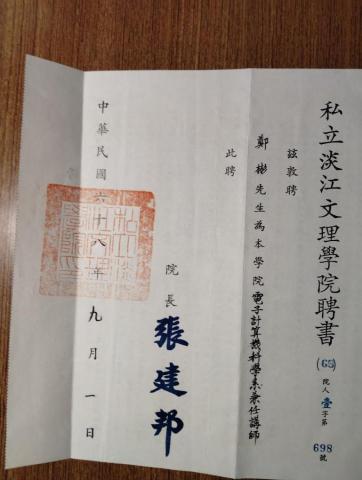 私立淡江文理學院聘書
(65)院人壹字第698號
茲敦聘
鄭彬先生為本學院電子計算機科學系兼任講師
此聘
院長 張建邦
中華民國六十八年九月一日